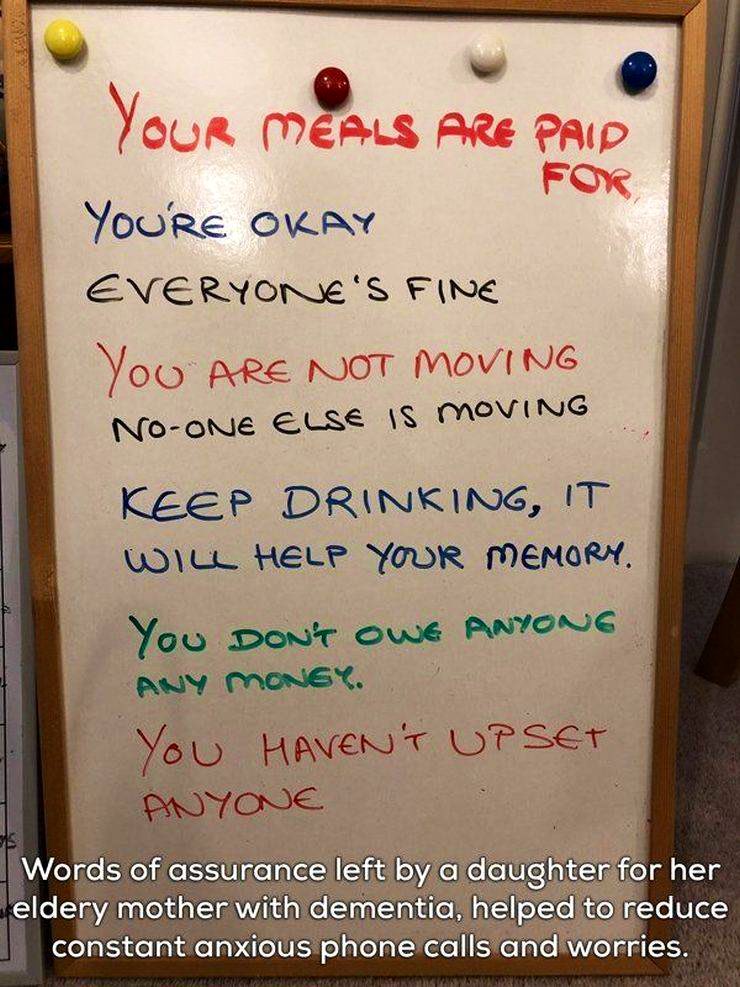 YOUR MEALS ARE PAID
FOR.
YOU'RE OKAY
EVERYONE'S FINE
YOU ARE NOT MOVING
NO-ONE ELSE IS MOVING
KEEP DRINKING, IT
WILL HELP YOUR MEMORY.
YOU DON'T OWE ANYONE
ANY MONEY.
YOU HAVEN'T UPSET
ANYONE
Words of assurance left by a daughter for her
eldery mother with dementia, helped to reduce
constant anxious phone calls and worries.